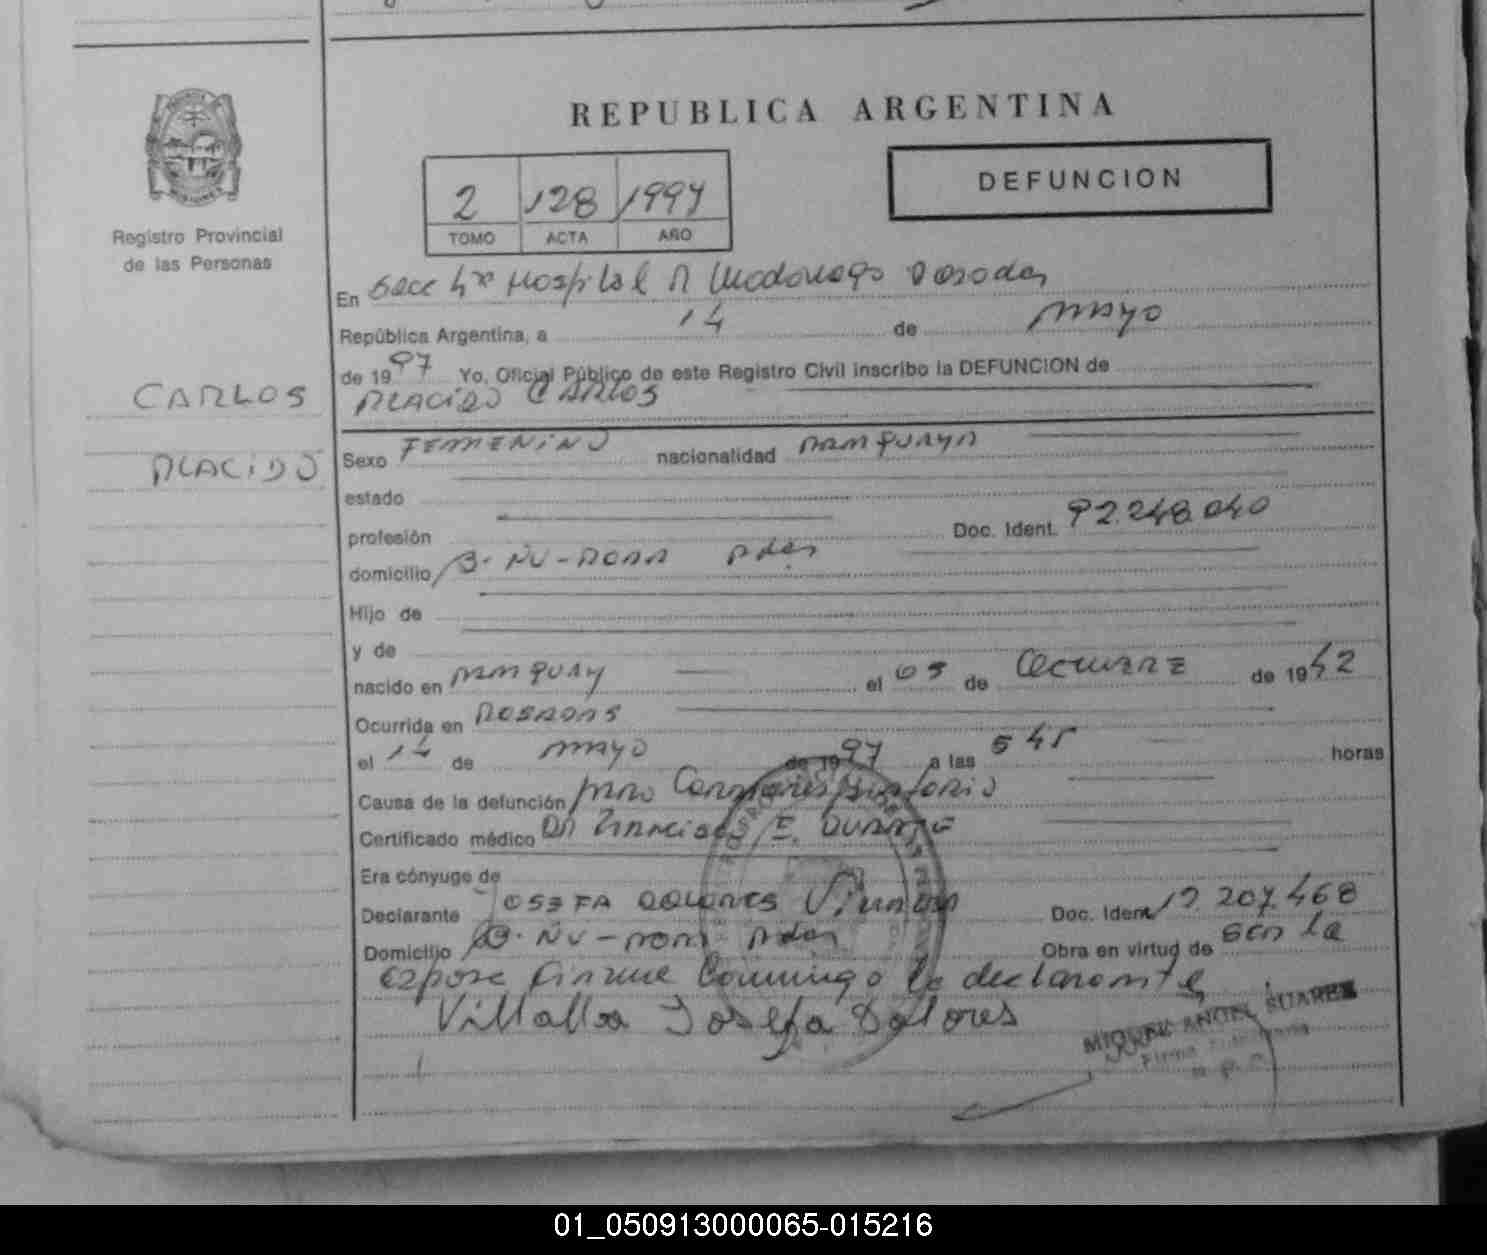 REPUBLICA ARGENTINA
DEFUNCION
2 128 1997
TOMO ACTA AÑO
Registro Provincial
de las Personas
CARLOS
PLACIDO
En Secc 4ta Hospital R Madariaga Posadas
República Argentina, a 14 de mayo
de 1997 Yo, Oficial Público de este Registro Civil inscribo la DEFUNCION de
PLACIDO CARLOS
Sexo FEMENINO nacionalidad PARAGUAYA
estado
profesión Doc. Ident. 92.248.040
domicilio B. ÑU-PORA Pdas
Hijo de
y de
nacido en PARAGUAY el 05 de OCTUBRE de 1942
Ocurrida en POSADAS
el 14 de mayo de 1997 a las 5 45 horas
Causa de la defunción paro Cardiorespiratorio
Certificado médico DR E. DUARTE
Era cónyuge de
Declarante JOSEFA DOLORES Doc. Ident 17.207.468
Domicilio B. ÑU-PORA Pdas Obra en virtud de
firma Conmigo la declarante
Villalba Josefa Dolores
MIGUEL ANGEL SUAREZ
01_050913000065-015216